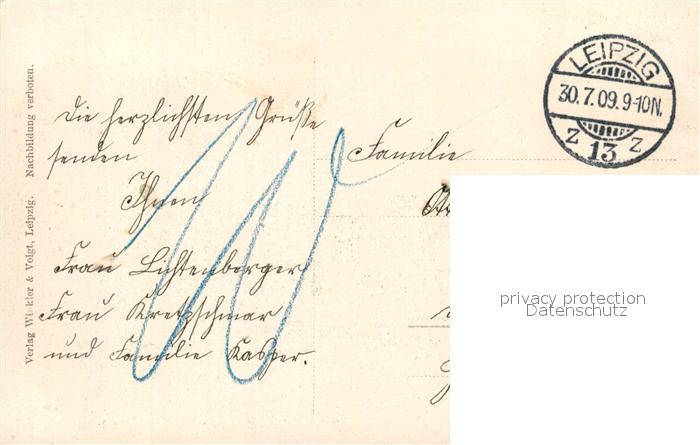 Die herzlichsten Grüße
senden
Ihnen
Frau Lichtenberger
Frau Kretzschmar
und Familie Kasper.
Familie
LEIPZIG
30.7.09.9-10N.
Z 13 Z
Verlag Winkler & Voigt, Leipzig. Nachbildung verboten.
privacy protection
Datenschutz